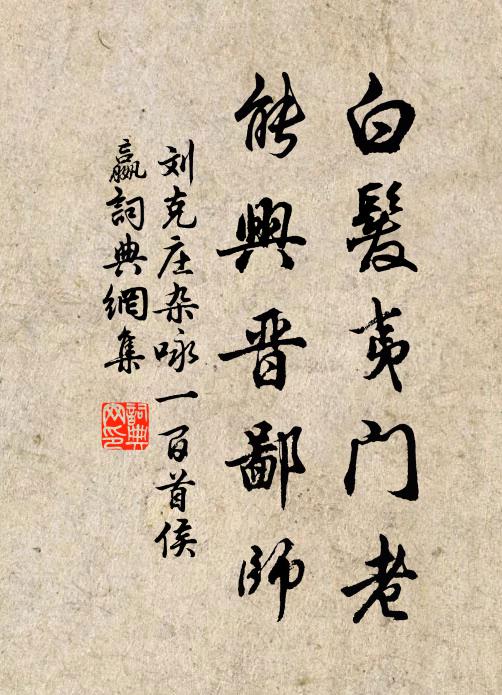 白髮夷门老
能興晋鄙師
刘克庄杂咏一百首侯
嬴詞典網集
詞典网印